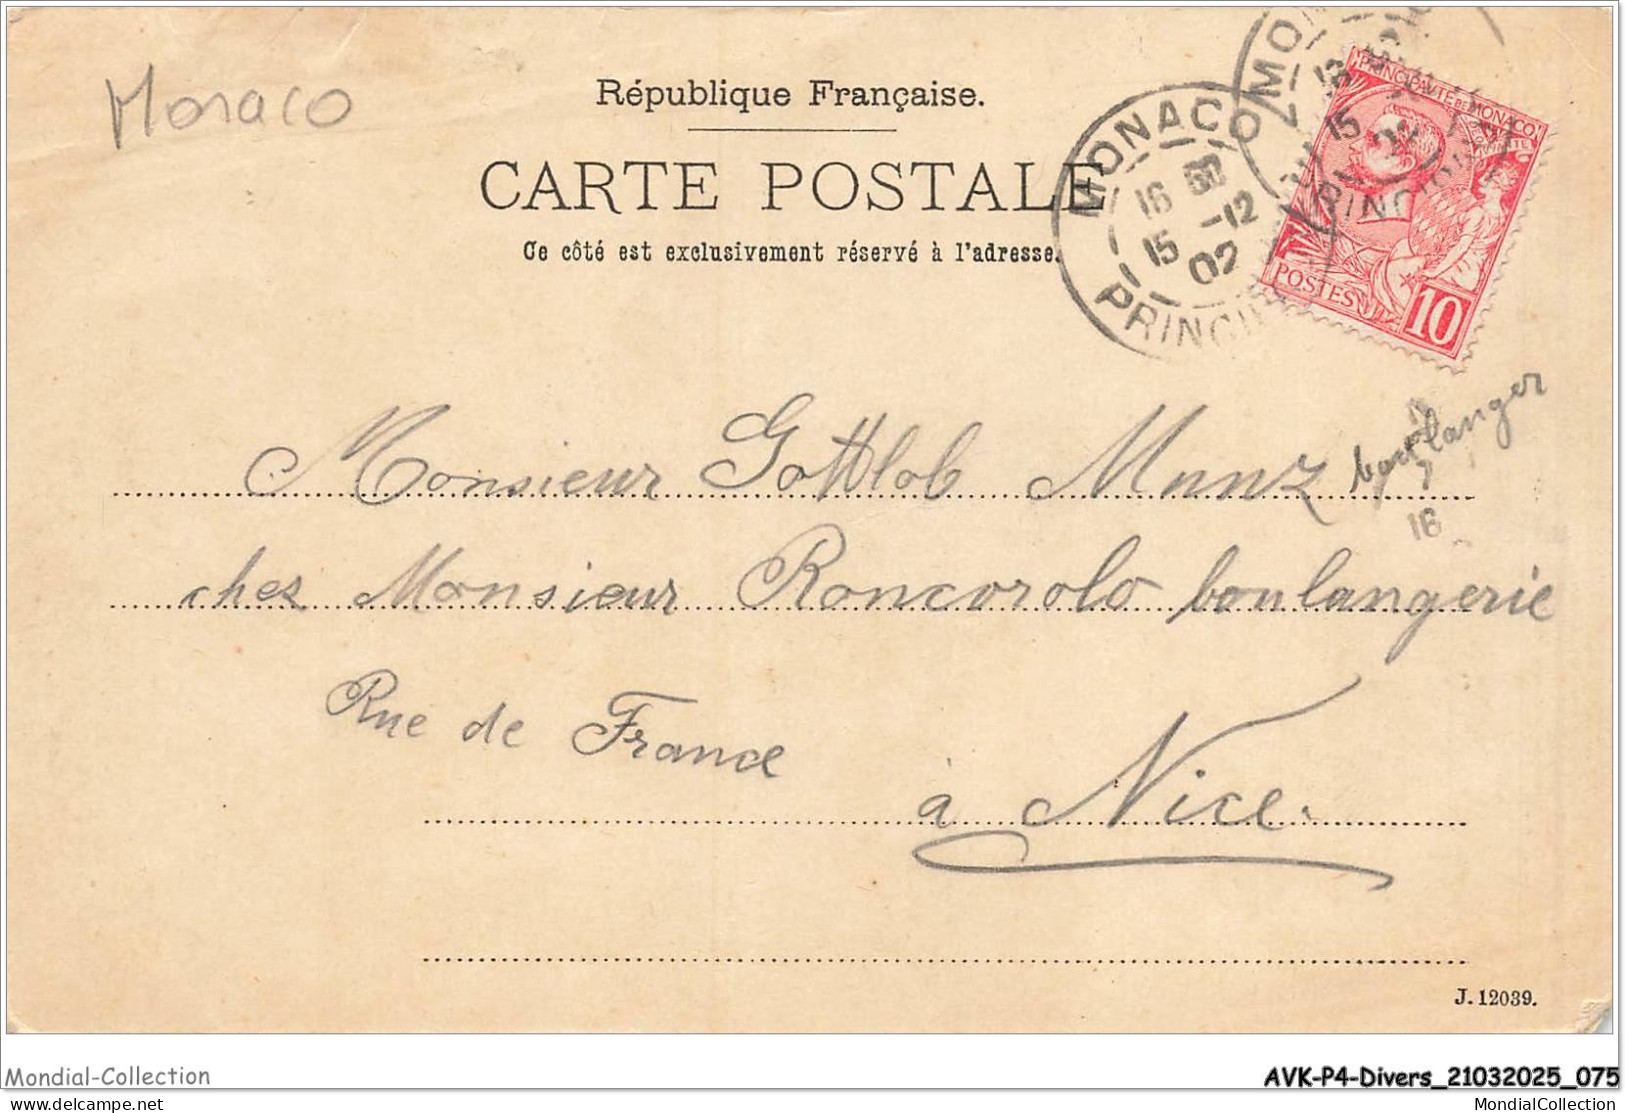 Monaco
République Française.
CARTE POSTALE
Ce côté est exclusivement réservé à l'adresse.
MONACO
16 30
15 -12
02
PRINCIP
PRINCIPAUTE DE MONACO
POSTES
10
Monsieur Gottlob Munz boulanger
16
chez Monsieur Roncorolo boulangerie
Rue de France
à Nice.
J. 12039.
Mondial-Collection
AVK-P4-Divers_21032025_075
delcampe.net
MondialCollection